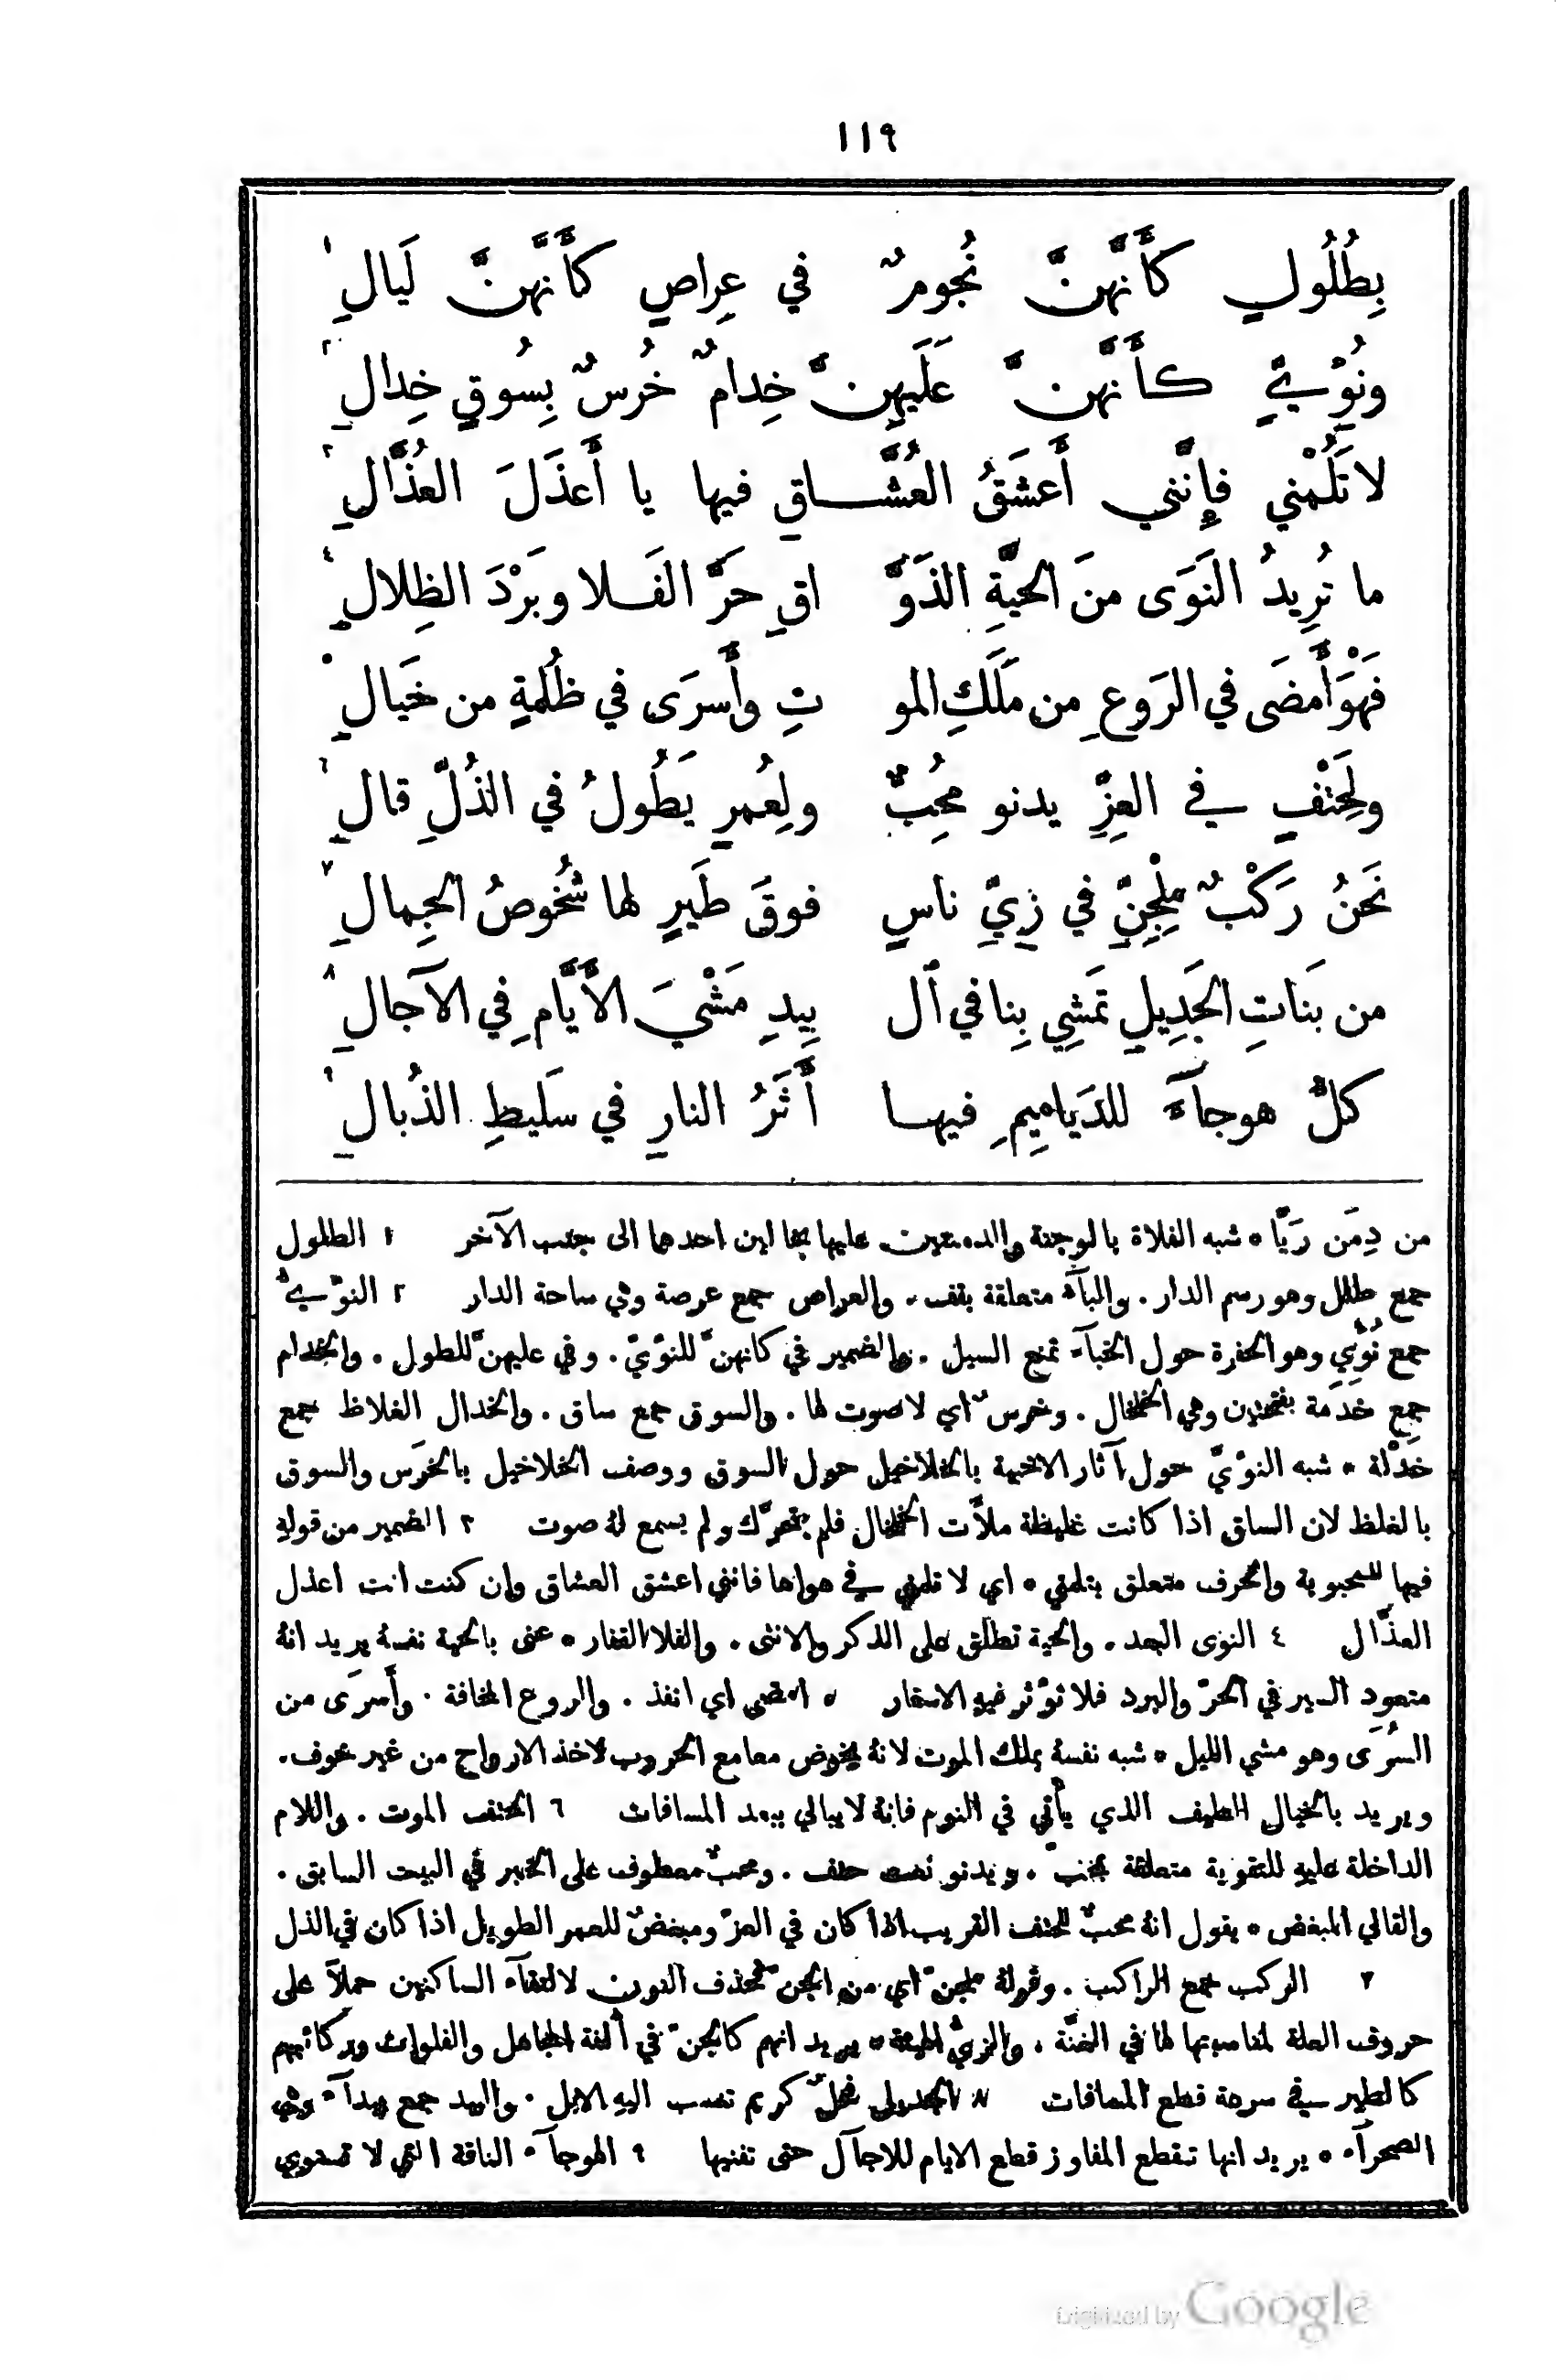 ١١٩
بِطُلُولٍ كأَنَّهنَّ نُجُومٌ في عِراصٍ كأَنَّهنَّ لَيالِ ١
ونُؤْيٍّ كأَنَّهنَّ عَلَيهِنَّ خِدامٌ خُرسٌ بِسُوقٍ خِدالِ ٢
لا تَلُمْني فإِنَّني أَعشَقُ العُشَّاقِ فيها يا أَعذَلَ العُذَّالِ ٣
ما تُرِيدُ النَوَى منَ الحَيَّةِ الذَوَّ اقِ حَرَّ الفَلا وبَرْدَ الظِلالِ ٤
فَهْوَ أَمضَى في الرَوعِ من مَلَكِ المو تِ وأَسرَى في ظُلمةٍ من خَيالِ ٥
ولِحَتْفٍ في العِزِّ يدنو مُحِبٌّ ولِعُمرٍ يَطُولُ في الذُلِّ قالِ ٦
نَحنُ رَكْبٌ مِلْجِنِّ في زِيِّ ناسٍ فوقَ طَيرٍ لها شُخوصُ الجِمالِ ٧
من بَناتِ الجَدِيلِ تَمشِي بِنا في ٱل بِيدِ مَشْيَ الأَيَّامِ في الآجالِ ٨
كلُّ هوجآءَ للدَياميمِ فيها أَثَرُ النارِ في سَليطِ الذُبالِ ٩
من دِمَن رَيَّا ٥ شبه الفلاة بالوجنة والدمنتين عليها بخالين احدهما الى جنب الآخر ١ الطلول
جمع طلل وهو رسم الدار . والبآء متعلقة بقف . والعراص جمع عرصة وهي ساحة الدار ٢ النؤيّ
جمع نُؤْيٍ وهو الحفرة حول الخبآء تمنع السيل . والضمير في كانهنّ للنؤيّ . وفي عليهنّ للطول . والخدام
جمع خدَمة بفتحتين وهي الخلخال . وخرسٌ اي لا صوت لها . والسوق جمع ساق . والخدال الغلاظ جمع
خَدْلة ٥ شبه النؤيّ حول آثار الاخبية بالخلاخيل حول السوق ووصف الخلاخيل بالخَرَس والسوق
بالغلظ لان الساق اذا كانت غليظة ملأَت الخلخال فلم يتحرَّك ولم يسمع لهُ صوت ٣ الضمير من قولهِ
فيها للمحبوبة والحرف متعلق بتلمني ٥ اي لا تلمني في هواها فانني اعشق العشاق وان كنت انت اعذل
العذَّال ٤ النوى البعد . والحية تطلق على الذكر والانثى . والفلا القفار ٥ عنى بالحية نفسهُ يريد انهُ
متعود السير في الحرّ والبرد فلا تؤثر فيهِ الاسفار ٥ امضى اي انفذ . والروع المخافة . وأَسرَى من
السُرَى وهو مشي الليل ٥ شبه نفسهُ بملك الموت لانهُ يخوض معامع الحروب لاخذ الارواح من غير خوف .
ويريد بالخيال الطيف الذي يأتي في النوم فانهُ لا يبالي ببعد المسافات ٦ الحتف الموت . واللام
الداخلة عليهِ للتقوية متعلقة بمحبّ . ويدنو نعت حتف . ومحبٌّ معطوف على الخبر في البيت السابق .
والقالي المبغض ٥ يقول انهُ محبٌّ للحتف القريب اذا كان في العزّ ومبغضٌ للعمر الطويل اذا كان في الذل
٧ الركب جمع الراكب . وقولهُ ملجنّ اي من الجن فحذف النون لالتقآء الساكنين حملاً على
حروف العلة لمناسبتها لها في الغنّة . والزيُّ الهيئة ٥ يريد انهم كالجنّ في ألفة المجاهل والفلوات وركائبهم
كالطير في سرعة قطع المسافات ٨ الجديل فحلٌ كريم تنسب اليهِ الابل . والبيد جمع بيدآء وهي
الصحرآء ٥ يريد انها تقطع المفاوز قطع الايام للآجال حتى تفنيها ٩ الهوجآء الناقة التي لا تستوي
Digitized by Google